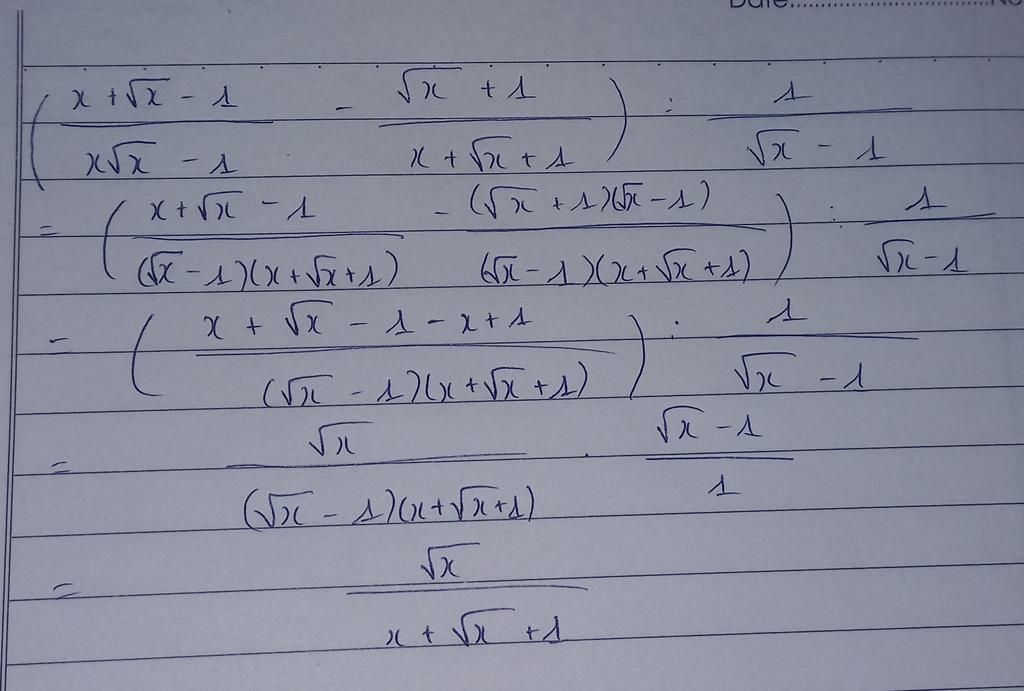 Date......................No
( (x + √x - 1)/(x√x - 1) - (√x + 1)/(x + √x + 1) ) : 1/(√x - 1)
= ( (x + √x - 1)/((√x - 1)(x + √x + 1)) - ((√x + 1)(√x - 1))/((√x - 1)(x + √x + 1)) ) : 1/(√x - 1)
= ( (x + √x - 1 - x + 1)/((√x - 1)(x + √x + 1)) ) : 1/(√x - 1)
= √x/((√x - 1)(x + √x + 1)) . (√x - 1)/1
= √x/(x + √x + 1)